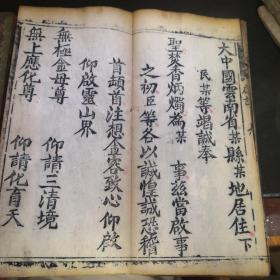 大中國雲南省某縣某地居住下
民某等竭誠奉
聖焚香炳燭為某 事茲當啟事
之初臣等各以誠惶誠恐稽
首頓首注想金容致心仰啟
仰啟靈山界
無極金母尊 仰請三清境
無上應化尊 仰請化育天